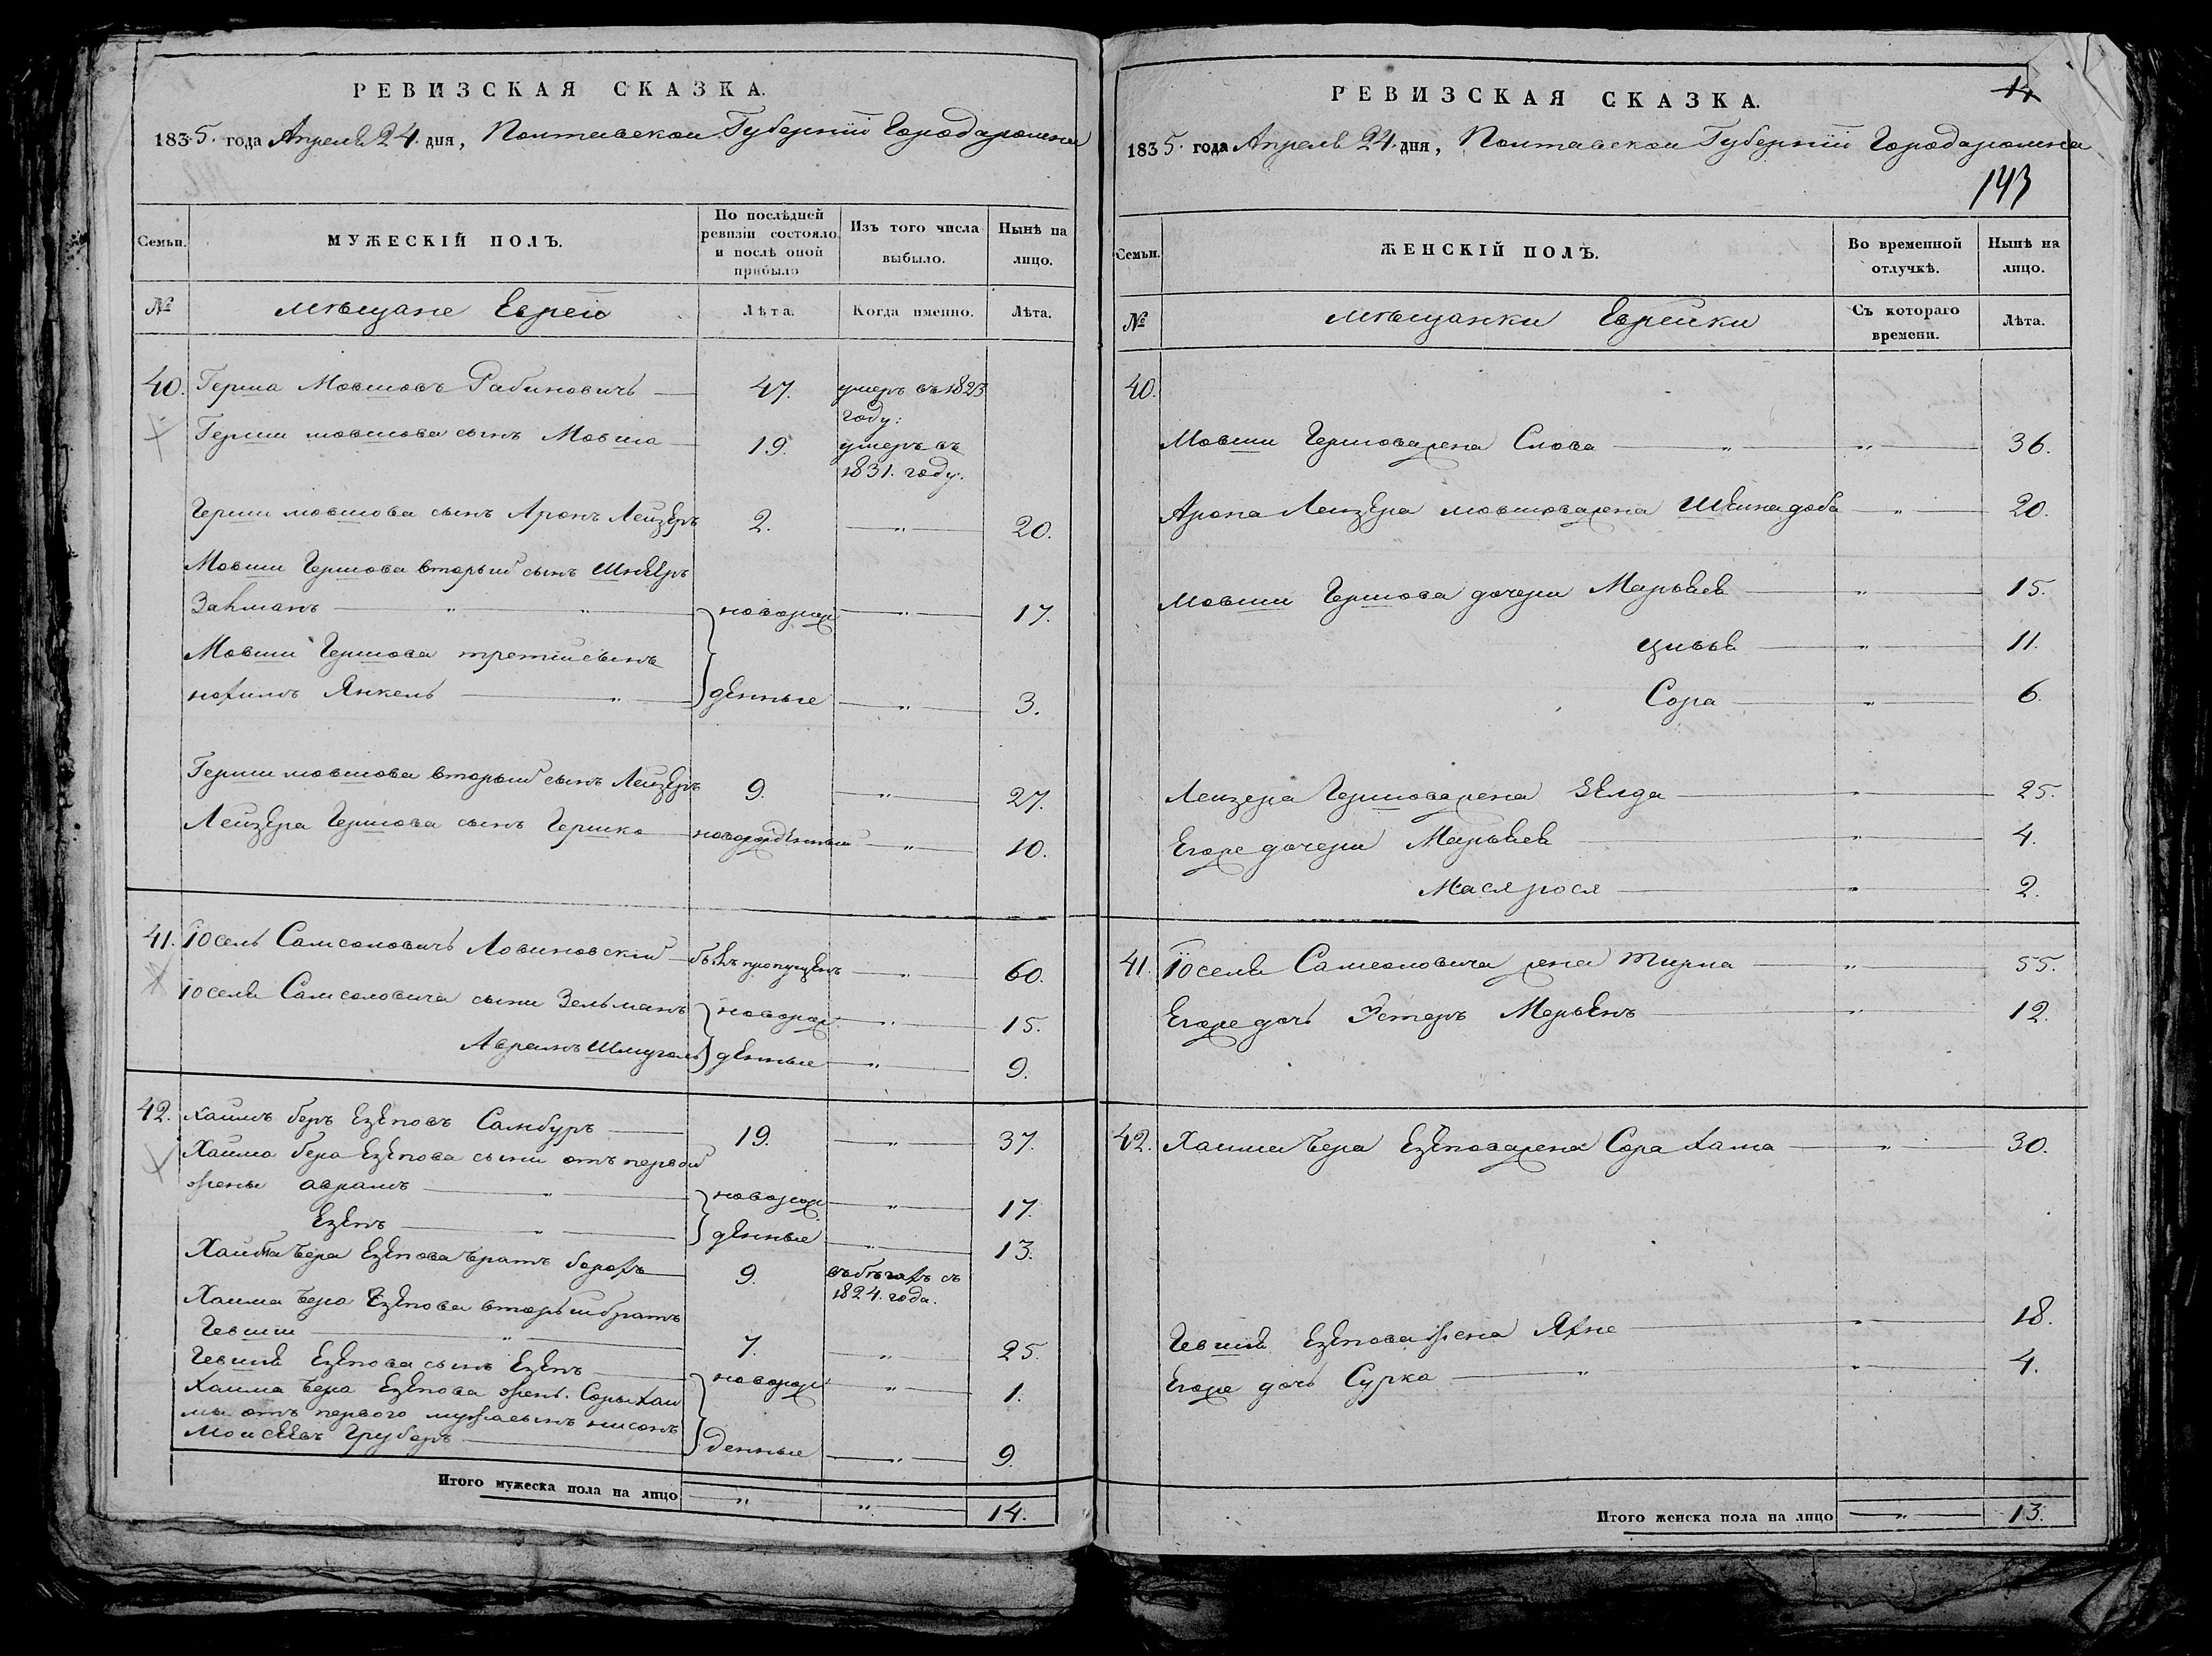 РЕВИЗСКАЯ СКАЗКА.
1835. года Апреля 24. дня, Полтавской Губерніи Города
Семьи.
МУЖЕСКІЙ ПОЛЪ.
По послѣдней ревизіи состояло и послѣ оной прибыло
Изъ того числа выбыло.
Нынѣ на лицо.
№
мѣщане Евреи
Лѣта.
Когда именно.
Лѣта.
40. Герша Мовшовъ Рабиновичъ 47. умеръ въ 1823
году:
Герши мовшова сынъ Мовша 19. умеръ въ
1831. году.
Герши мовшова сынъ Аронъ Лейзеръ 2. — " — 20.
Мовши Гершова вторый сынъ Шнееръ
Залманъ — " — " — новорож — " — 17.
Мовши Гершова третій сынъ
нохимъ Янкель — " — денные — " — 3.
Герши мовшова вторый сынъ Лейзеръ 9. — " — 27.
Лейзера Гершова сынъ Гершко новорожденный — " — 10.
41. Іосель Самсоновичъ Ловиновскій былъ пропущенъ — " — 60.
Іоселя Самсоновича сыни Зельманъ новорож — " — 15.
Аврамъ Шмуголь денные — " — 9.
42. Хаимъ беръ Езеповъ Самбуръ 19. — " — 37.
Хаима бера Езепова сыни отъ первой
жены аврамъ — " — новорож — " — 17.
Езепъ — " — денные — " — 13.
Хаима Бера Езепова братъ борохъ 9. въ бѣгахъ съ
1824. года.
Хаима Бера Езепова вторый братъ
Гевши — " — 7. — " — 25.
Гевшія Езепова сынъ Езепъ новорож — " — 1.
Хаима Бера Езепова жены. Соры Хаи
мы отъ первого мужа сынъ нисонъ
Моисеевъ Груберъ денные — " — 9.
Итого мужеска пола на лицо — " — " — 14.
РЕВИЗСКАЯ СКАЗКА.
14
1835. года Апреля 24. дня, Полтавской Губерніи Города
143
Семьи.
ЖЕНСКІЙ ПОЛЪ.
Во временной отлучкѣ.
Нынѣ на лицо.
№
мѣщанки Еврейки
Съ котораго времени.
Лѣта.
40.
Мовши Гершова жена Слова — " — " — 36.
Арона Лейзера мовшова жена Шейнадоба — " — 20.
Мовши Гершова дочери Марьяся — " — 15.
Цивья — " — 11.
Сора — " — 6.
Лейзера Гершова жена Зелда — " — 25.
Егоже дочери Марьяся — " — 4.
Масярося — " — 2.
41. Іоселя Самсоновича жена Тирна — " — 55.
Егоже дочь Эстеръ Мерьенъ — " — 12.
42. Хаима Бера Езепова жена Сора Хама — " — 30.
Гевшія Езепова жена Яхне — " — 18.
Егоже дочь Сурка — " — " — 4.
Итого женска пола на лицо — " — 13.